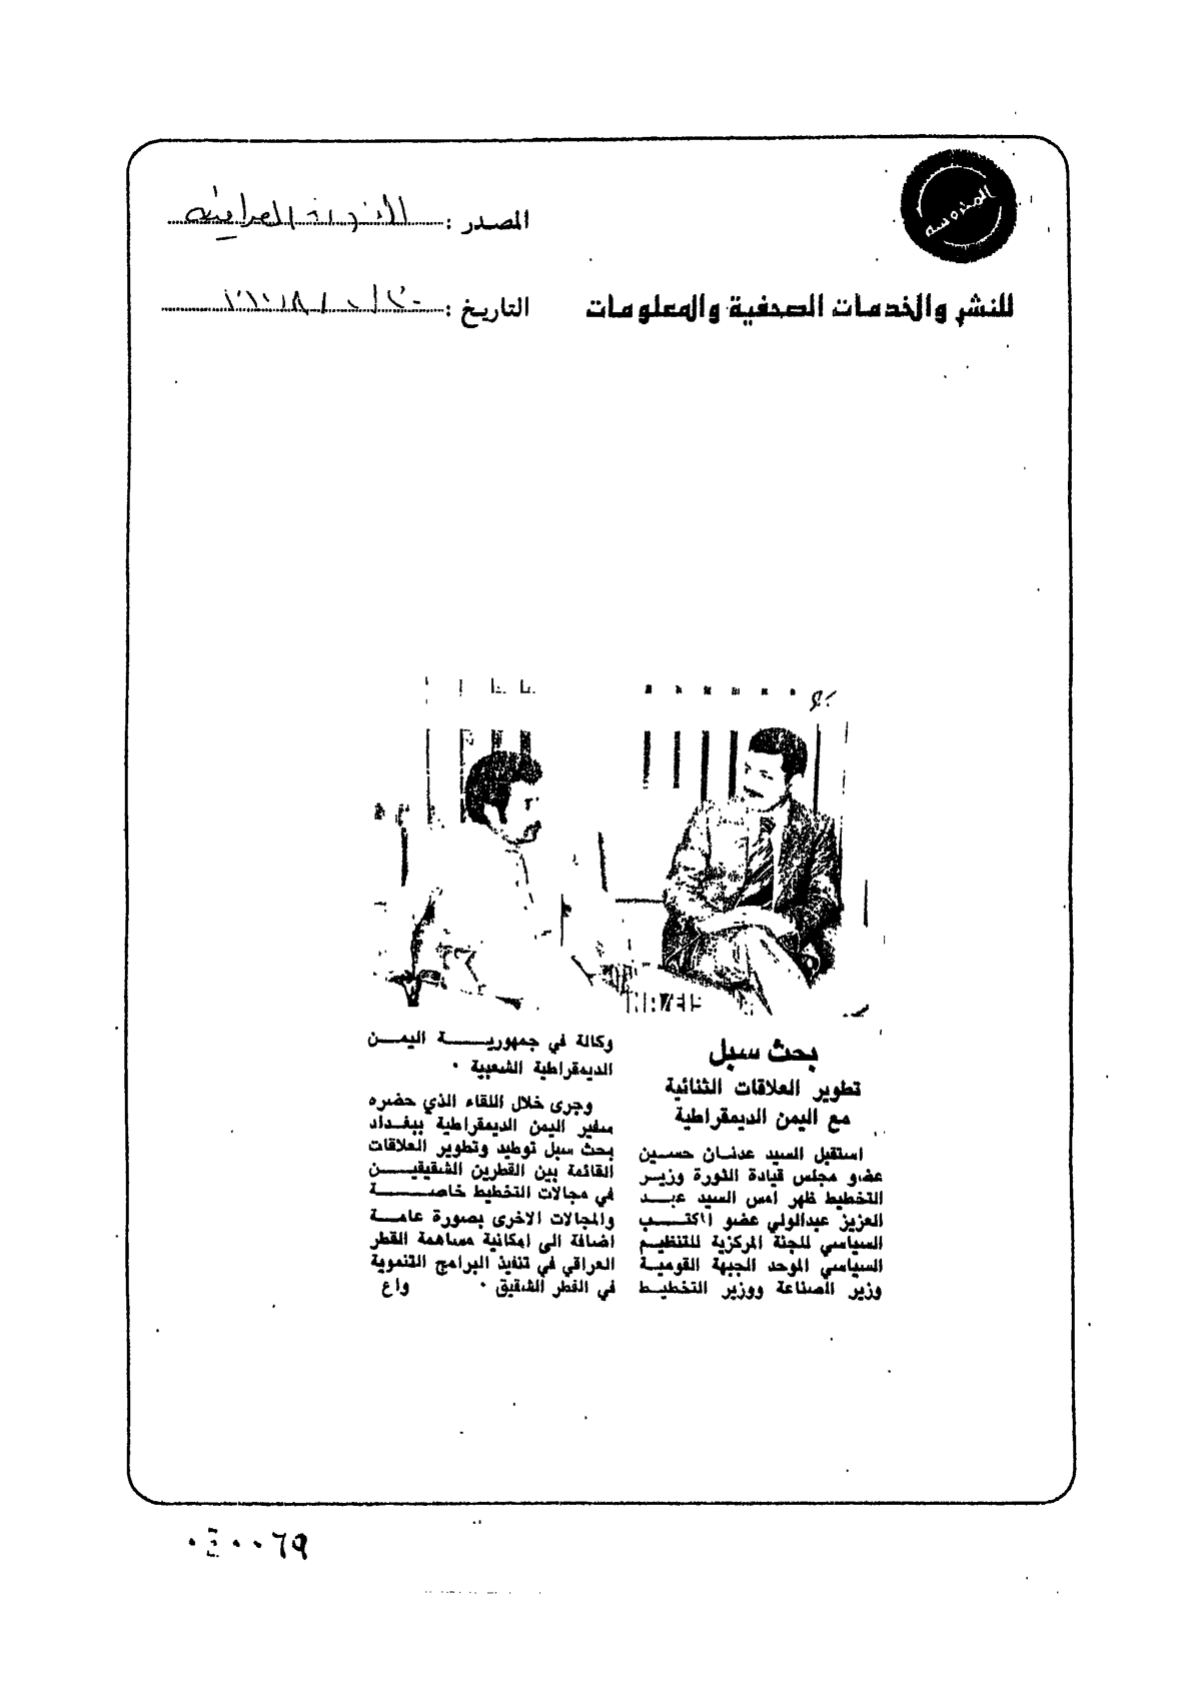 المحروسة
المصدر :
للنشر والخدمات الصحفية والمعلومات
التاريخ :
بحث سبل
تطوير العلاقات الثنائية
مع اليمن الديمقراطية
استقبل السيد عدنان حسين
عضو مجلس قيادة الثورة وزير
التخطيط ظهر امس السيد عبد
العزيز عبدالولي عضو المكتب
السياسي للجنة المركزية للتنظيم
السياسي الموحد الجبهة القومية
وزير الصناعة ووزير التخطيط
وكالة في جمهورية اليمن
الديمقراطية الشعبية .
وجرى خلال اللقاء الذي حضره
سفير اليمن الديمقراطية ببغداد
بحث سبل توطيد وتطوير العلاقات
القائمة بين القطرين الشقيقين
في مجالات التخطيط خاصة
والمجالات الاخرى بصورة عامة
اضافة الى امكانية مساهمة القطر
العراقي في تنفيذ البرامج التنموية
في القطر الشقيق . واع
٠٤٠٠٦٩